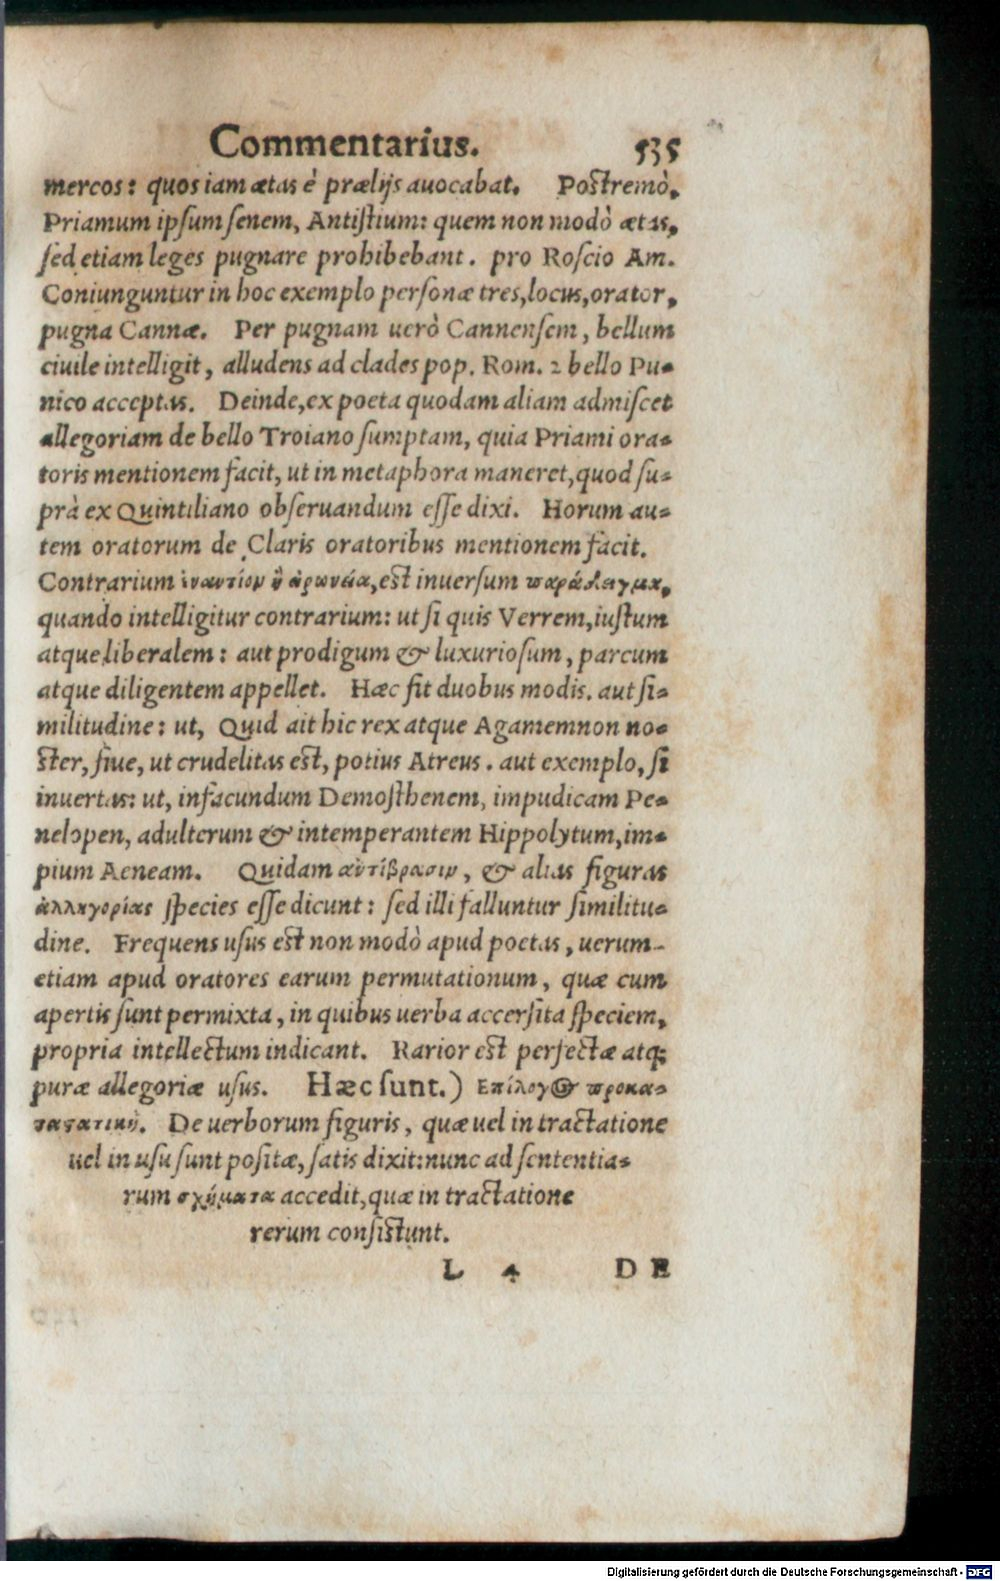 Commentarius. 535
mercos: quos iam ætas è prælijs auocabat. Postremò,
Priamum ipsum senem, Antistium: quem non modò ætas,
sed etiam leges pugnare prohibebant. pro Roscio Am.
Coniunguntur in hoc exemplo personæ tres, locus, orator,
pugna Cannæ. Per pugnam uerò Cannensem, bellum
ciuile intelligit, alludens ad clades pop. Rom. 2 bello Pu-
nico acceptas. Deinde, ex poeta quodam aliam admiscet
allegoriam de bello Troiano sumptam, quia Priami ora-
toris mentionem facit, ut in metaphora maneret, quod su-
prà ex Quintiliano obseruandum esse dixi. Horum au-
tem oratorum de Claris oratoribus mentionem facit.
Contrarium est inuersum
quando intelligitur contrarium: ut si quis Verrem, iustum
atque liberalem: aut prodigum & luxuriosum, parcum
atque diligentem appellet. Hæc fit duobus modis. aut si-
militudine: ut, Quid ait hic rex atque Agamemnon no-
ster, siue, ut crudelitas est, potius Atreus. aut exemplo, si
inuertas: ut, infacundum Demosthenem, impudicam Pe-
nelopen, adulterum & intemperantem Hippolytum, im-
pium Aeneam. Quidam & alias figuras
ἀλληγορίας species esse dicunt: sed illi falluntur similitu-
dine. Frequens usus est non modò apud poetas, uerum-
etiam apud oratores earum permutationum, quæ cum
apertis sunt permixta, in quibus uerba accersita speciem,
propria intellectum indicant. Rarior est perfectæ atq;
puræ allegoriæ usus. Hæc sunt.) Επίλογος προκα-
De uerborum figuris, quæ uel in tractatione
uel in usu sunt positæ, satis dixit: nunc ad sententia-
rum σχήματα accedit, quæ in tractatione
rerum consistunt.
L 4 DE
Digitalisierung gefördert durch die Deutsche Forschungsgemeinschaft - DFG